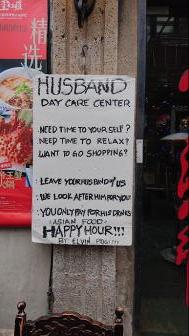 精选
HUSBAND
DAY CARE CENTER
.NEED TIME TO YOURSELF?
.NEED TIME TO RELAX?
WANT TO GO SHOPPING?
.LEAVE YOUR HUSBAND W/ US
.WE LOOK AFTER HIM FOR YOU
:YOU ONLY PAY FOR HIS DRINKS
ASIAN FOOD
HAPPY HOUR!!!
BY ELVIN